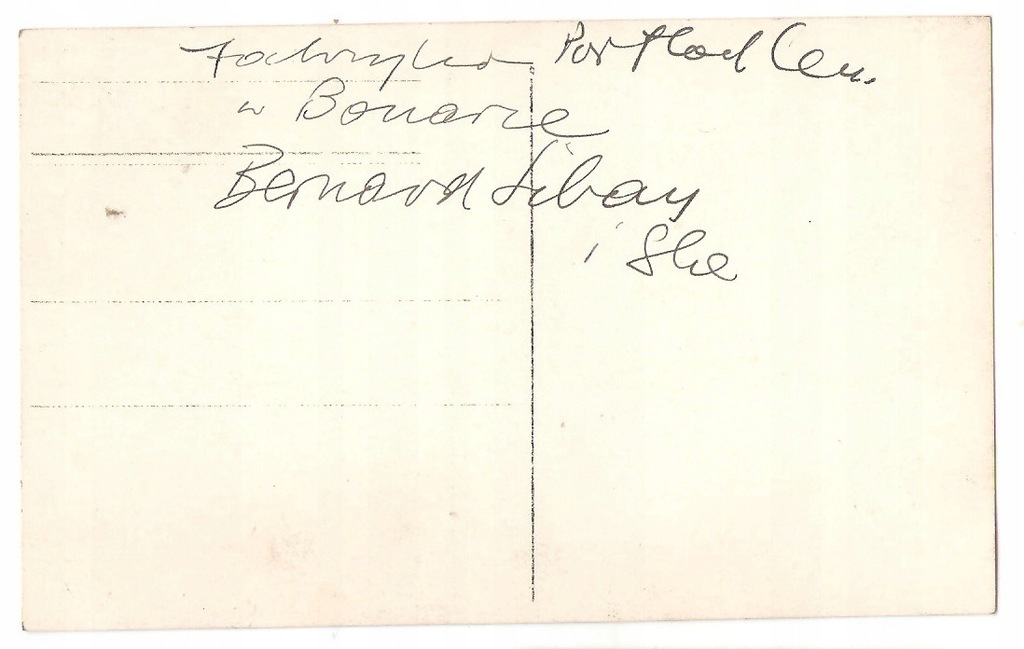 Fabryka Portland Cem.
w Bonarce
Bernard Liban
i Ska